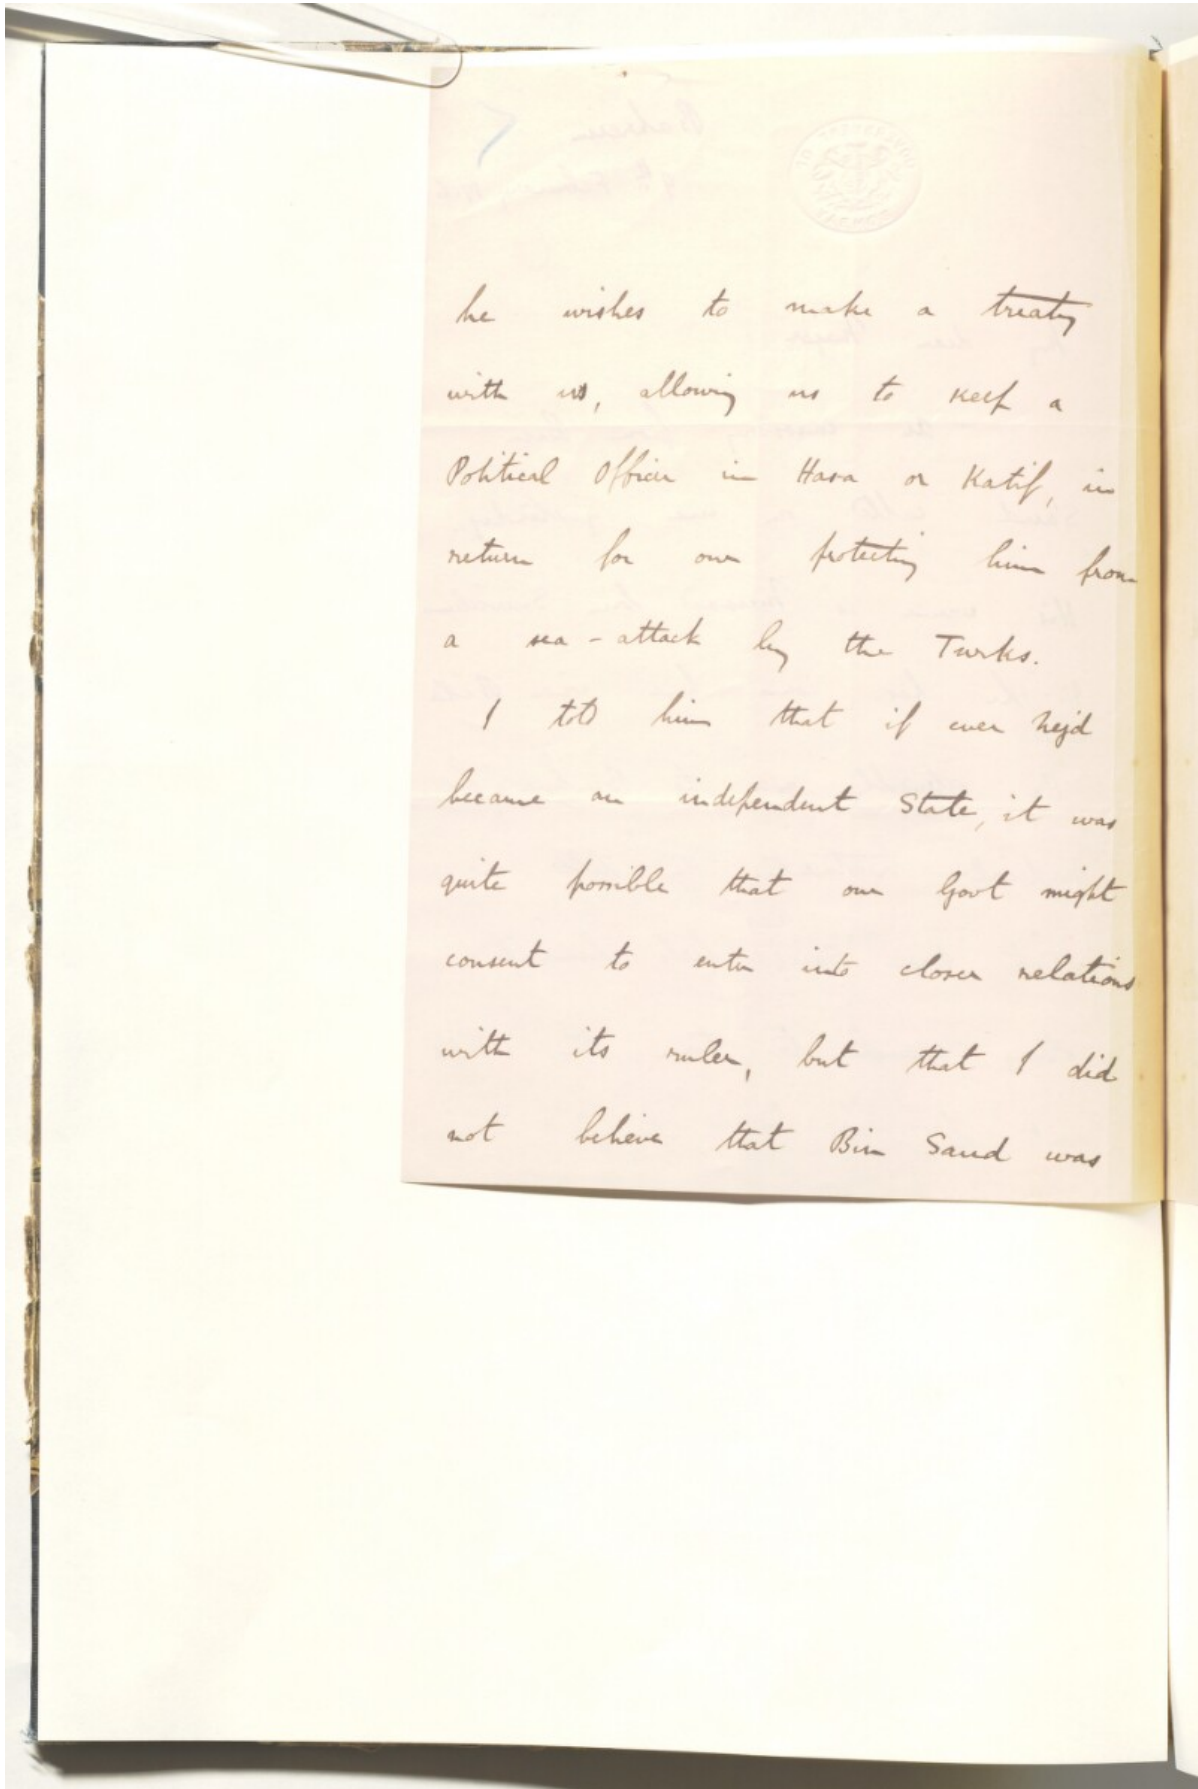 he wishes to make a treaty
with us, allowing us to keep a
Political Officer in Hasa or Katif, in
return for our protecting him from
a sea-attack by the Turks.
I told him that if ever Nejd
became an independent State, it was
quite possible that our Govt might
consent to enter into closer relations
with its ruler, but that I did
not believe that Bin Saud was